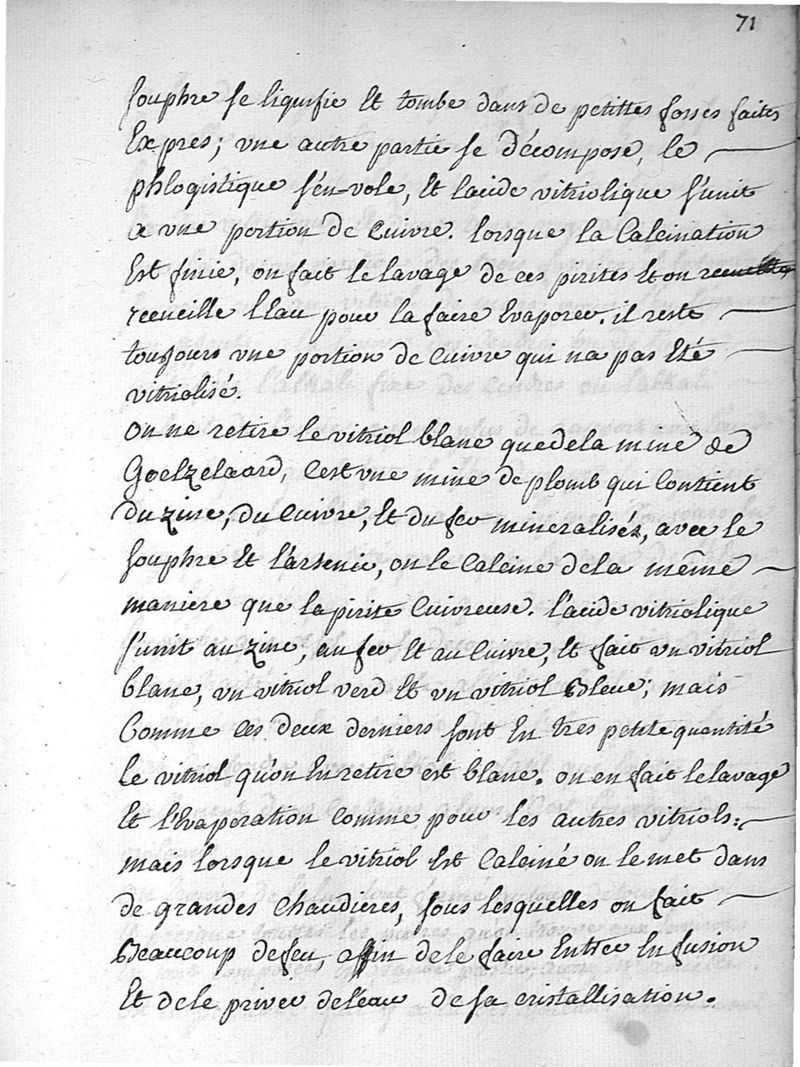 71
souphre se liquifie et tombe dans de petittes fosses faites
Expres; vne autre partie se décompose, le
phlogistique s'en-vole, et lacide vitriolique s'unit
a vne portion de cuivre. lorsque la Calcination
Est finie, on fait le lavage de ces pirites et on
recueille l'Eau pour la faire Evaporer. il reste
toujours vne portion de cuivre qui na pas Eté
vitriolisé.
on ne retire le vitriol blanc que de la mine de
Goelzelaard, C'est vne mine de plomb qui Contient
du zinc, du Cuivre, et du fer mineralisés, avec le
souphre et l'arsenic, on le Calcine de la même
maniere que la pirite Cuivreuse. l'acide vitriolique
s'unit au zinc, au fer et au Cuivre, et fait vn vitriol
blanc, vn vitriol verd et vn vitriol Bleue; mais
Comme ces deux derniers sont En tres petite quantité
Le vitriol qu'on En retire est blanc. on en fait le lavage
et l'Evaporation Comme pour les autres vitriols:
mais lorsque le vitriol est Calciné on le met dans
de grandes Chaudieres, sous lesquelles on fait
Beaucoup de feu affin de le faire Entrer En fusion
Et de le priver de l'eau de sa cristallisation.